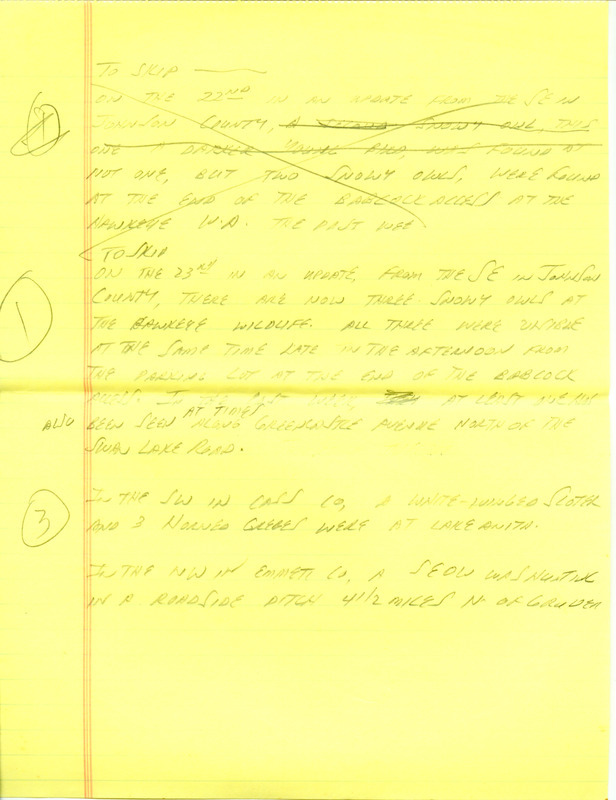 To SKIP
ON THE 22ND IN AN UPDATE FROM THE SE IN
① JOHNSON COUNTY, A SECOND SNOWY OWL, THIS
ONE A DARKER YOUNG BIRD, WAS FOUND AT
NOT ONE, BUT TWO SNOWY OWLS, WERE FOUND
AT THE END OF THE BABCOCK ACCESS AT THE
HAWKEYE W.A. THE PAST WEE
TO SKIP
ON THE 23RD IN AN UPDATE, FROM THE SE IN JOHNSON
① COUNTY, THERE ARE NOW THREE SNOWY OWLS AT
THE HAWKEYE WILDLIFE. ALL THREE WERE VISIBLE
AT THE SAME TIME LATE IN THE AFTERNOON FROM
THE PARKING LOT AT THE END OF THE BABCOCK
ACCESS. IN THE PAST AT LEAST ONE HAS
ALSO BEEN SEEN AT TIMES ALONG GREENCASTLE AVENUE NORTH OF THE
SWAN LAKE ROAD.
③ IN THE SW IN CASS CO, A WHITE-WINGED SCOTER
AND 3 HORNED GREBES WERE AT LAKE ANITA.
IN THE NW IN EMMETT CO. A SEOW WAS HUNTING
IN A ROADSIDE DITCH 4 1/2 MILES N OF GRUVER